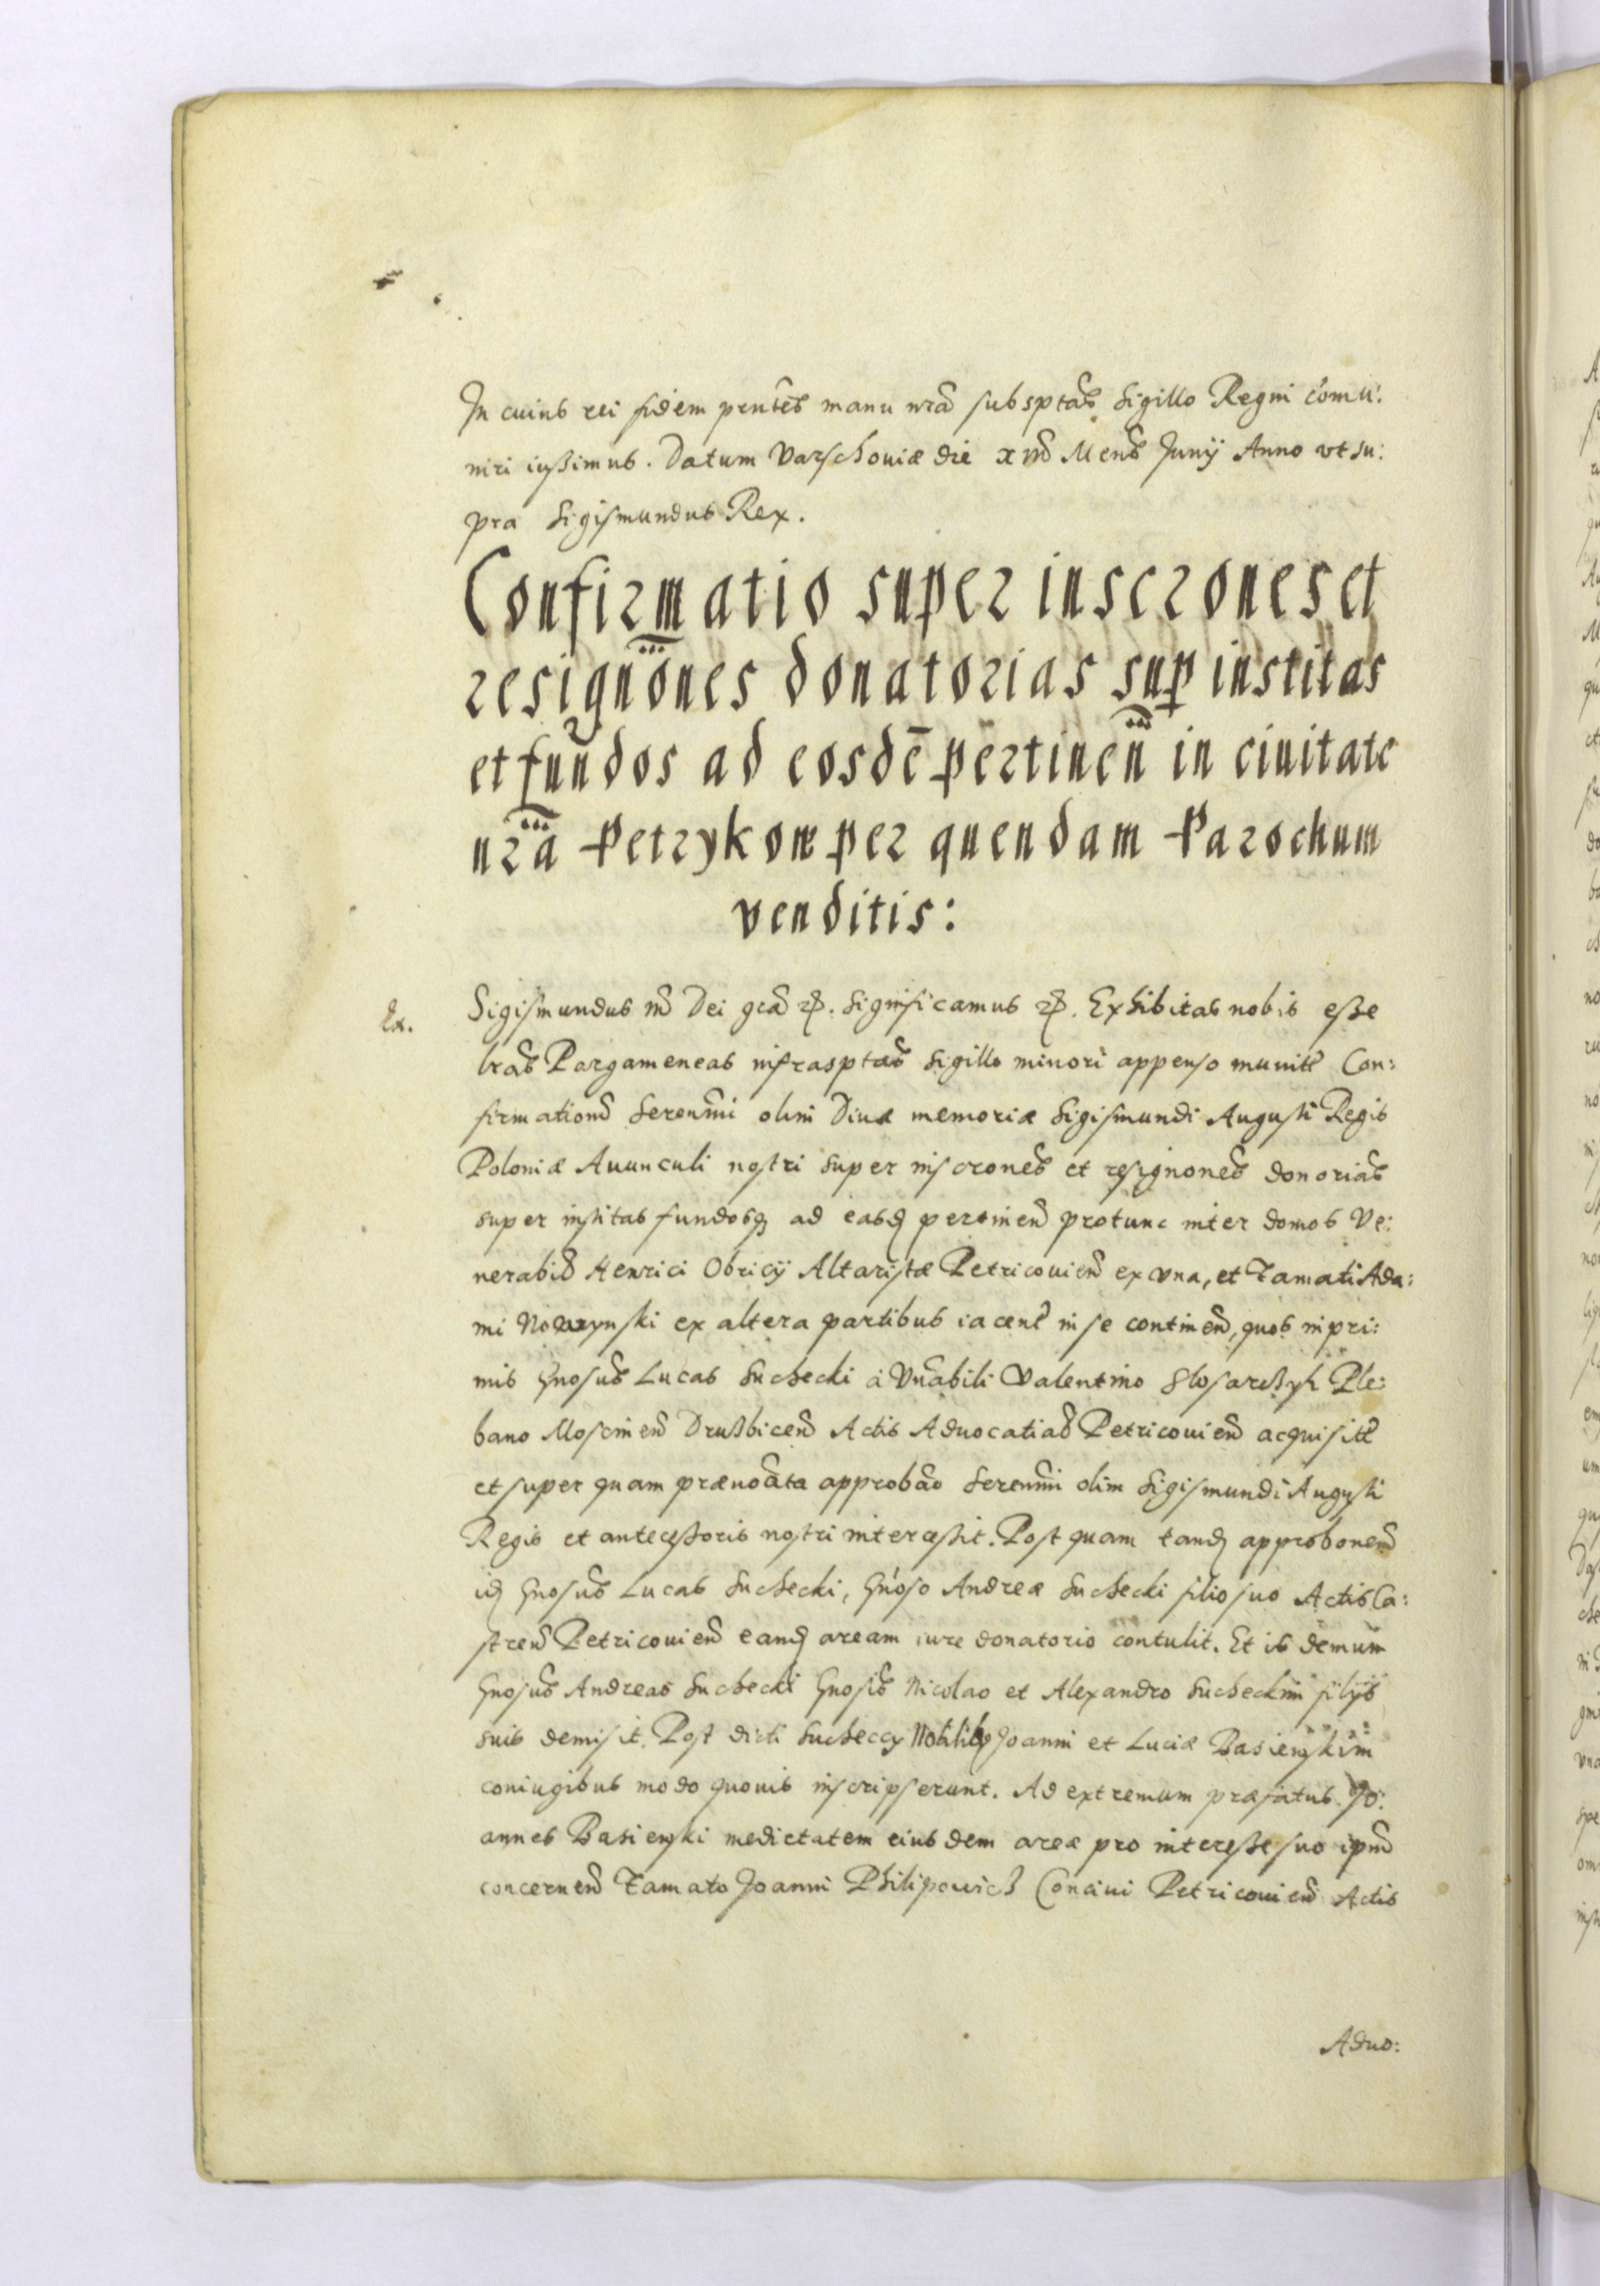 In cuius rei fidem prntes manu nra subsptas Sigillo Regni comu:
niri iussimus. Datum Varschoviæ die Mens Junij Anno vt su:
pra Sigismundus Rex.
Confirmatio super inscrones et
resignones donatorias sup institas
et fundos ad eosdē pertinen in ciuitate
nra Petrykow per quendam Parochum
venditis:
Ex.
Sigismundus Dei gra Significamus Exhibitas nobis esse
lras Pargameneas infrasptas Sigillo minori appenso munit Con:
firmation Serenmi olim Diuæ memoriæ Sigismundi Augusti Regis
Poloniæ Auunculi nostri super inscrones et resignones donorias
super institas fundosq ad easd pertinen protunc inter domos Ve:
nerabil Henrici Obricij Altaristæ Petricouien ex vna, et Famati Ada:
mi ex altera partibus iacent in se continen, quos inpri:
mis Gnosus Lucas Suchecki a Vnabili Valentino Slosarchyk Ple:
bano Moscinen Drusbicen Actis Aduocatial Petricouien acquisit
et super quam prænoata approbao Serenmi olim Sigismundi Augusti
Regis et antecessoris nostri intercessit. Post quam tand approbonem
id Gnosus Lucas Suchecki, Gnoso Andreæ Suchecki filio suo Actis Ca:
stren Petricouien eand aream iure donatorio contulit. Et is demum
Gnosus Andreas Suchecki Gnosis Nicolao et Alexandro Sucheckim filijs
suis demisit. Post dicti Sucheccy Nobilib Joanni et Luciæ Basienskim
coniugibus modo quouis inscripserunt. Ad extremum præfatus Jo:
annes Basienski medietatem eiusdem areæ pro interesse suo ipm
concernen Famato Joanni Philipowicz Conciui Petricouien Actis
Aduo: